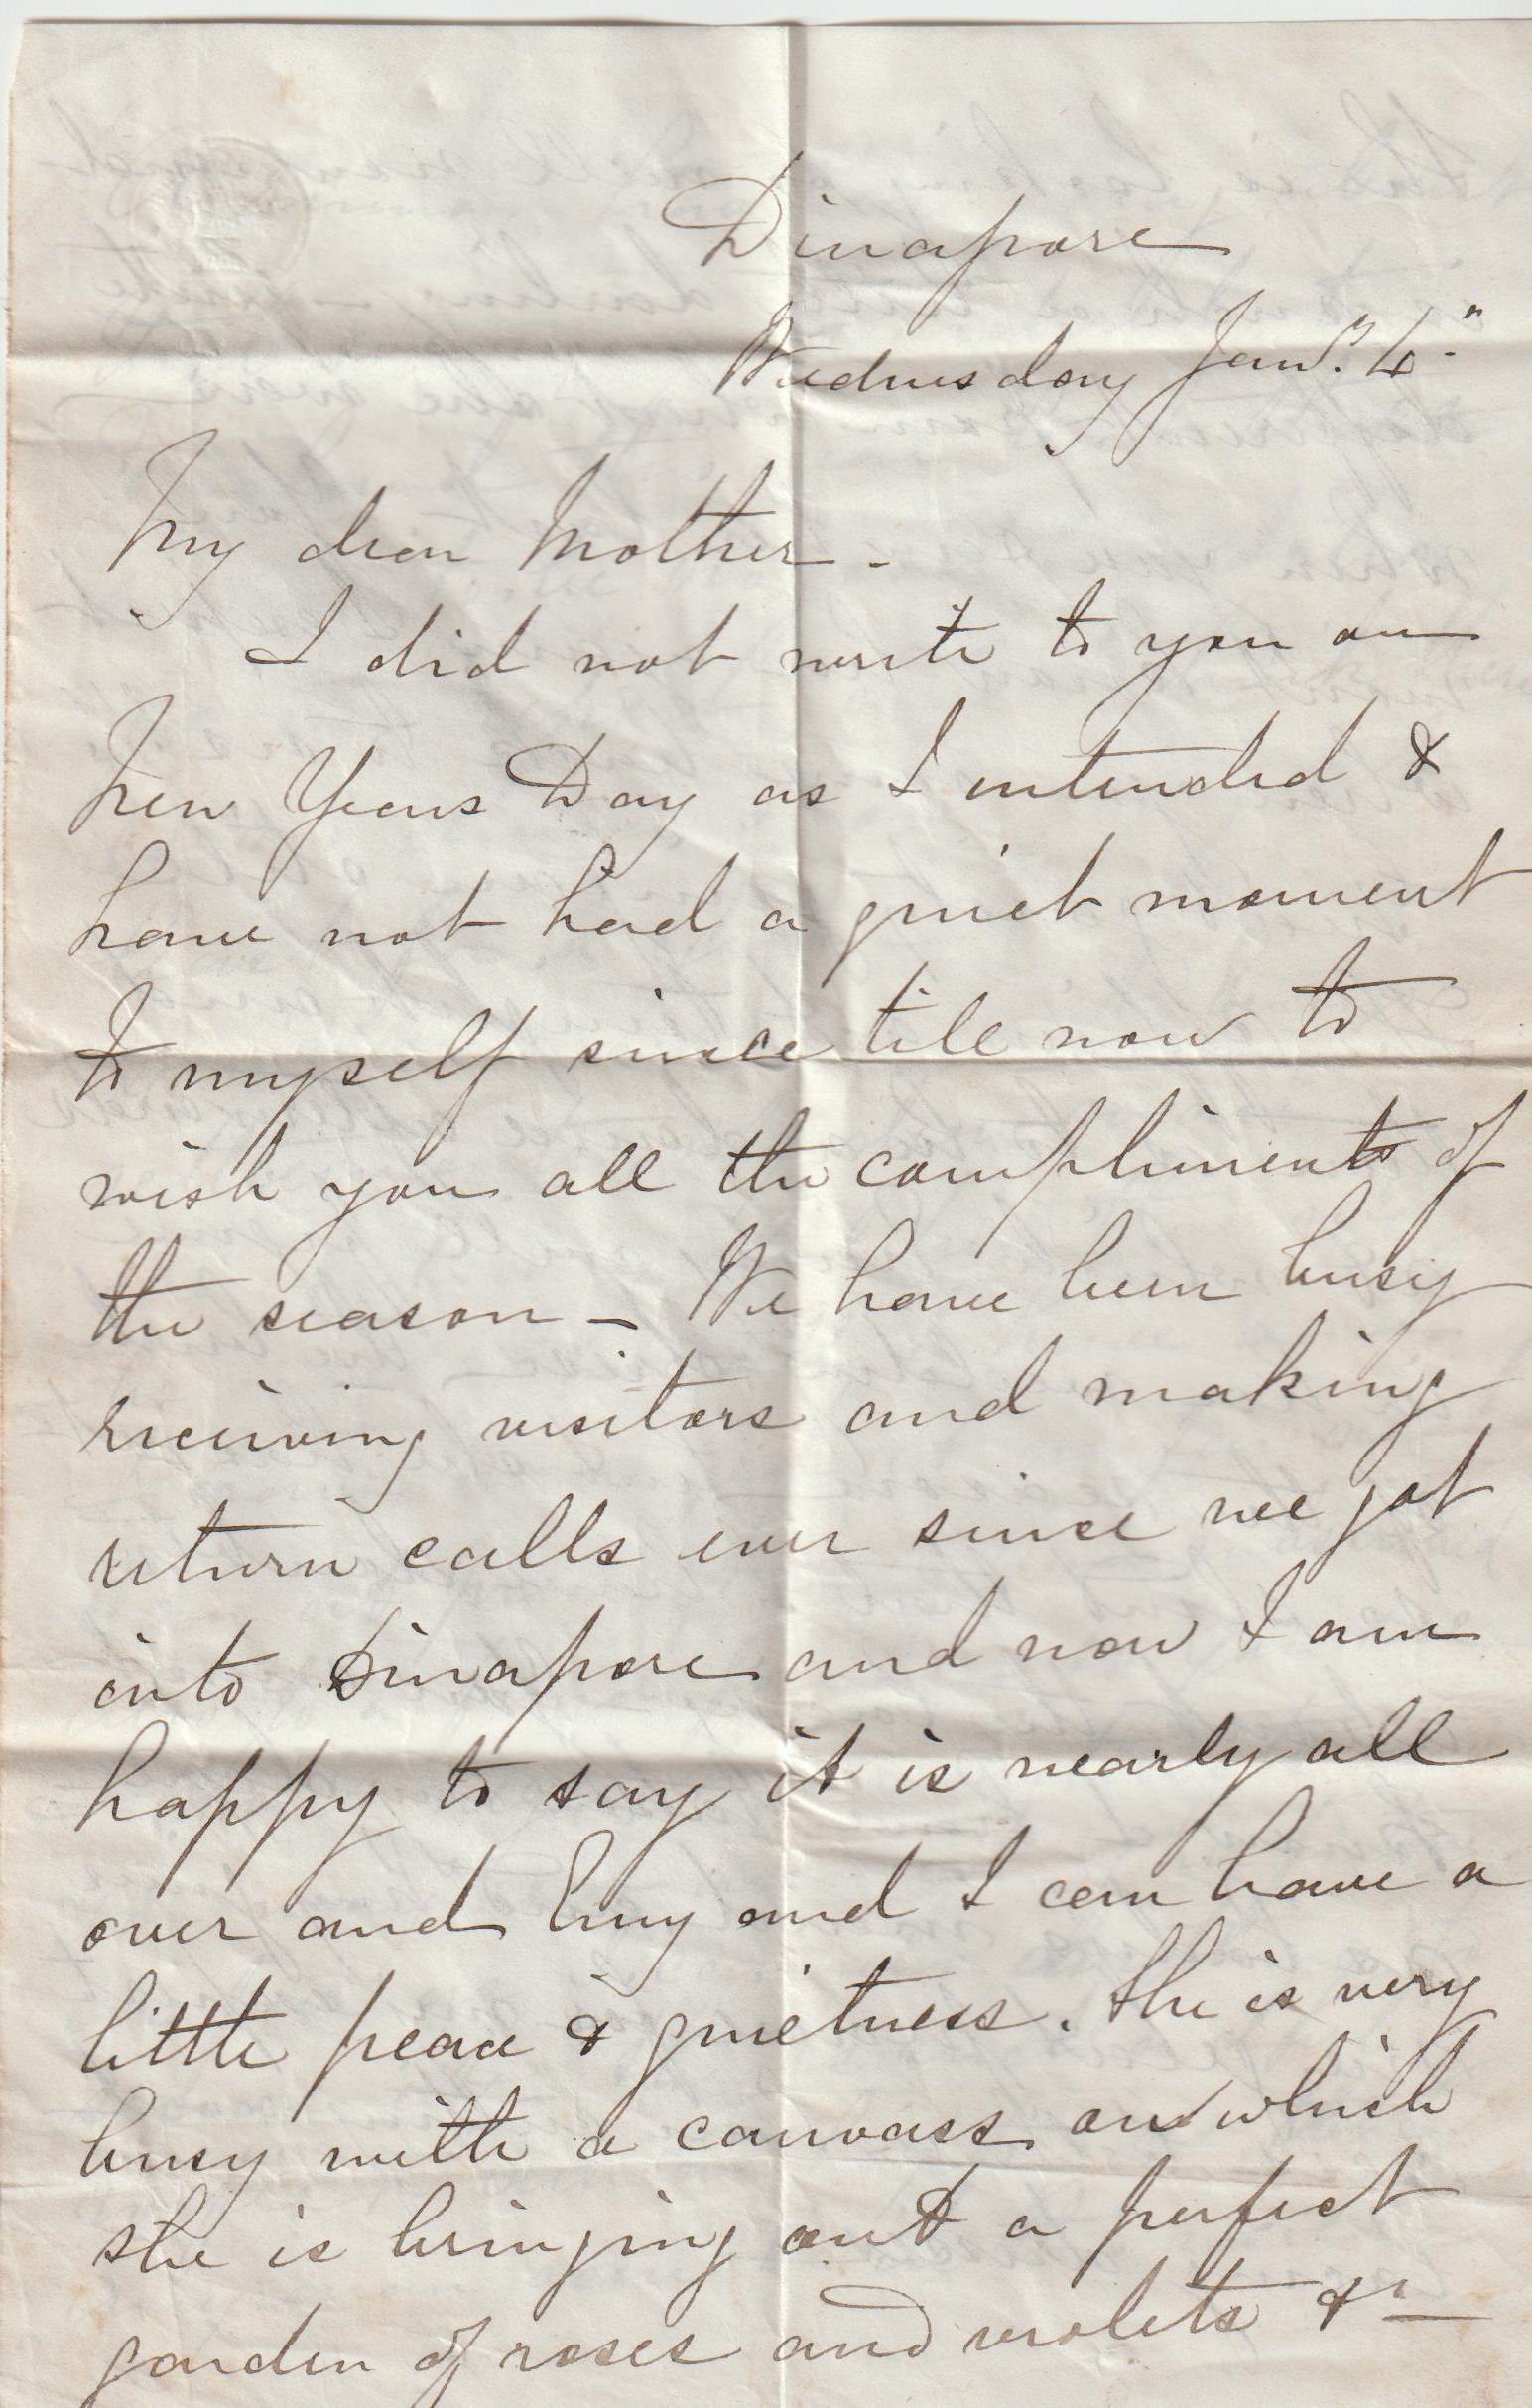 Dinapore
Wednesday Jany. 4"
My dear Mother -
I did not write to you on
New Years Day as I intended &
have not had a quiet moment
to myself since till now to
wish you all the compliments of
the season - We have been busy
receiving visitors and making
return calls ever since we got
into Dinapore and now I am
happy to say it is nearly all
over and Emy and I can have a
little peace & quietness. She is very
busy with a canvass on which
she is bringing out a perfect
garden of roses and violets &c